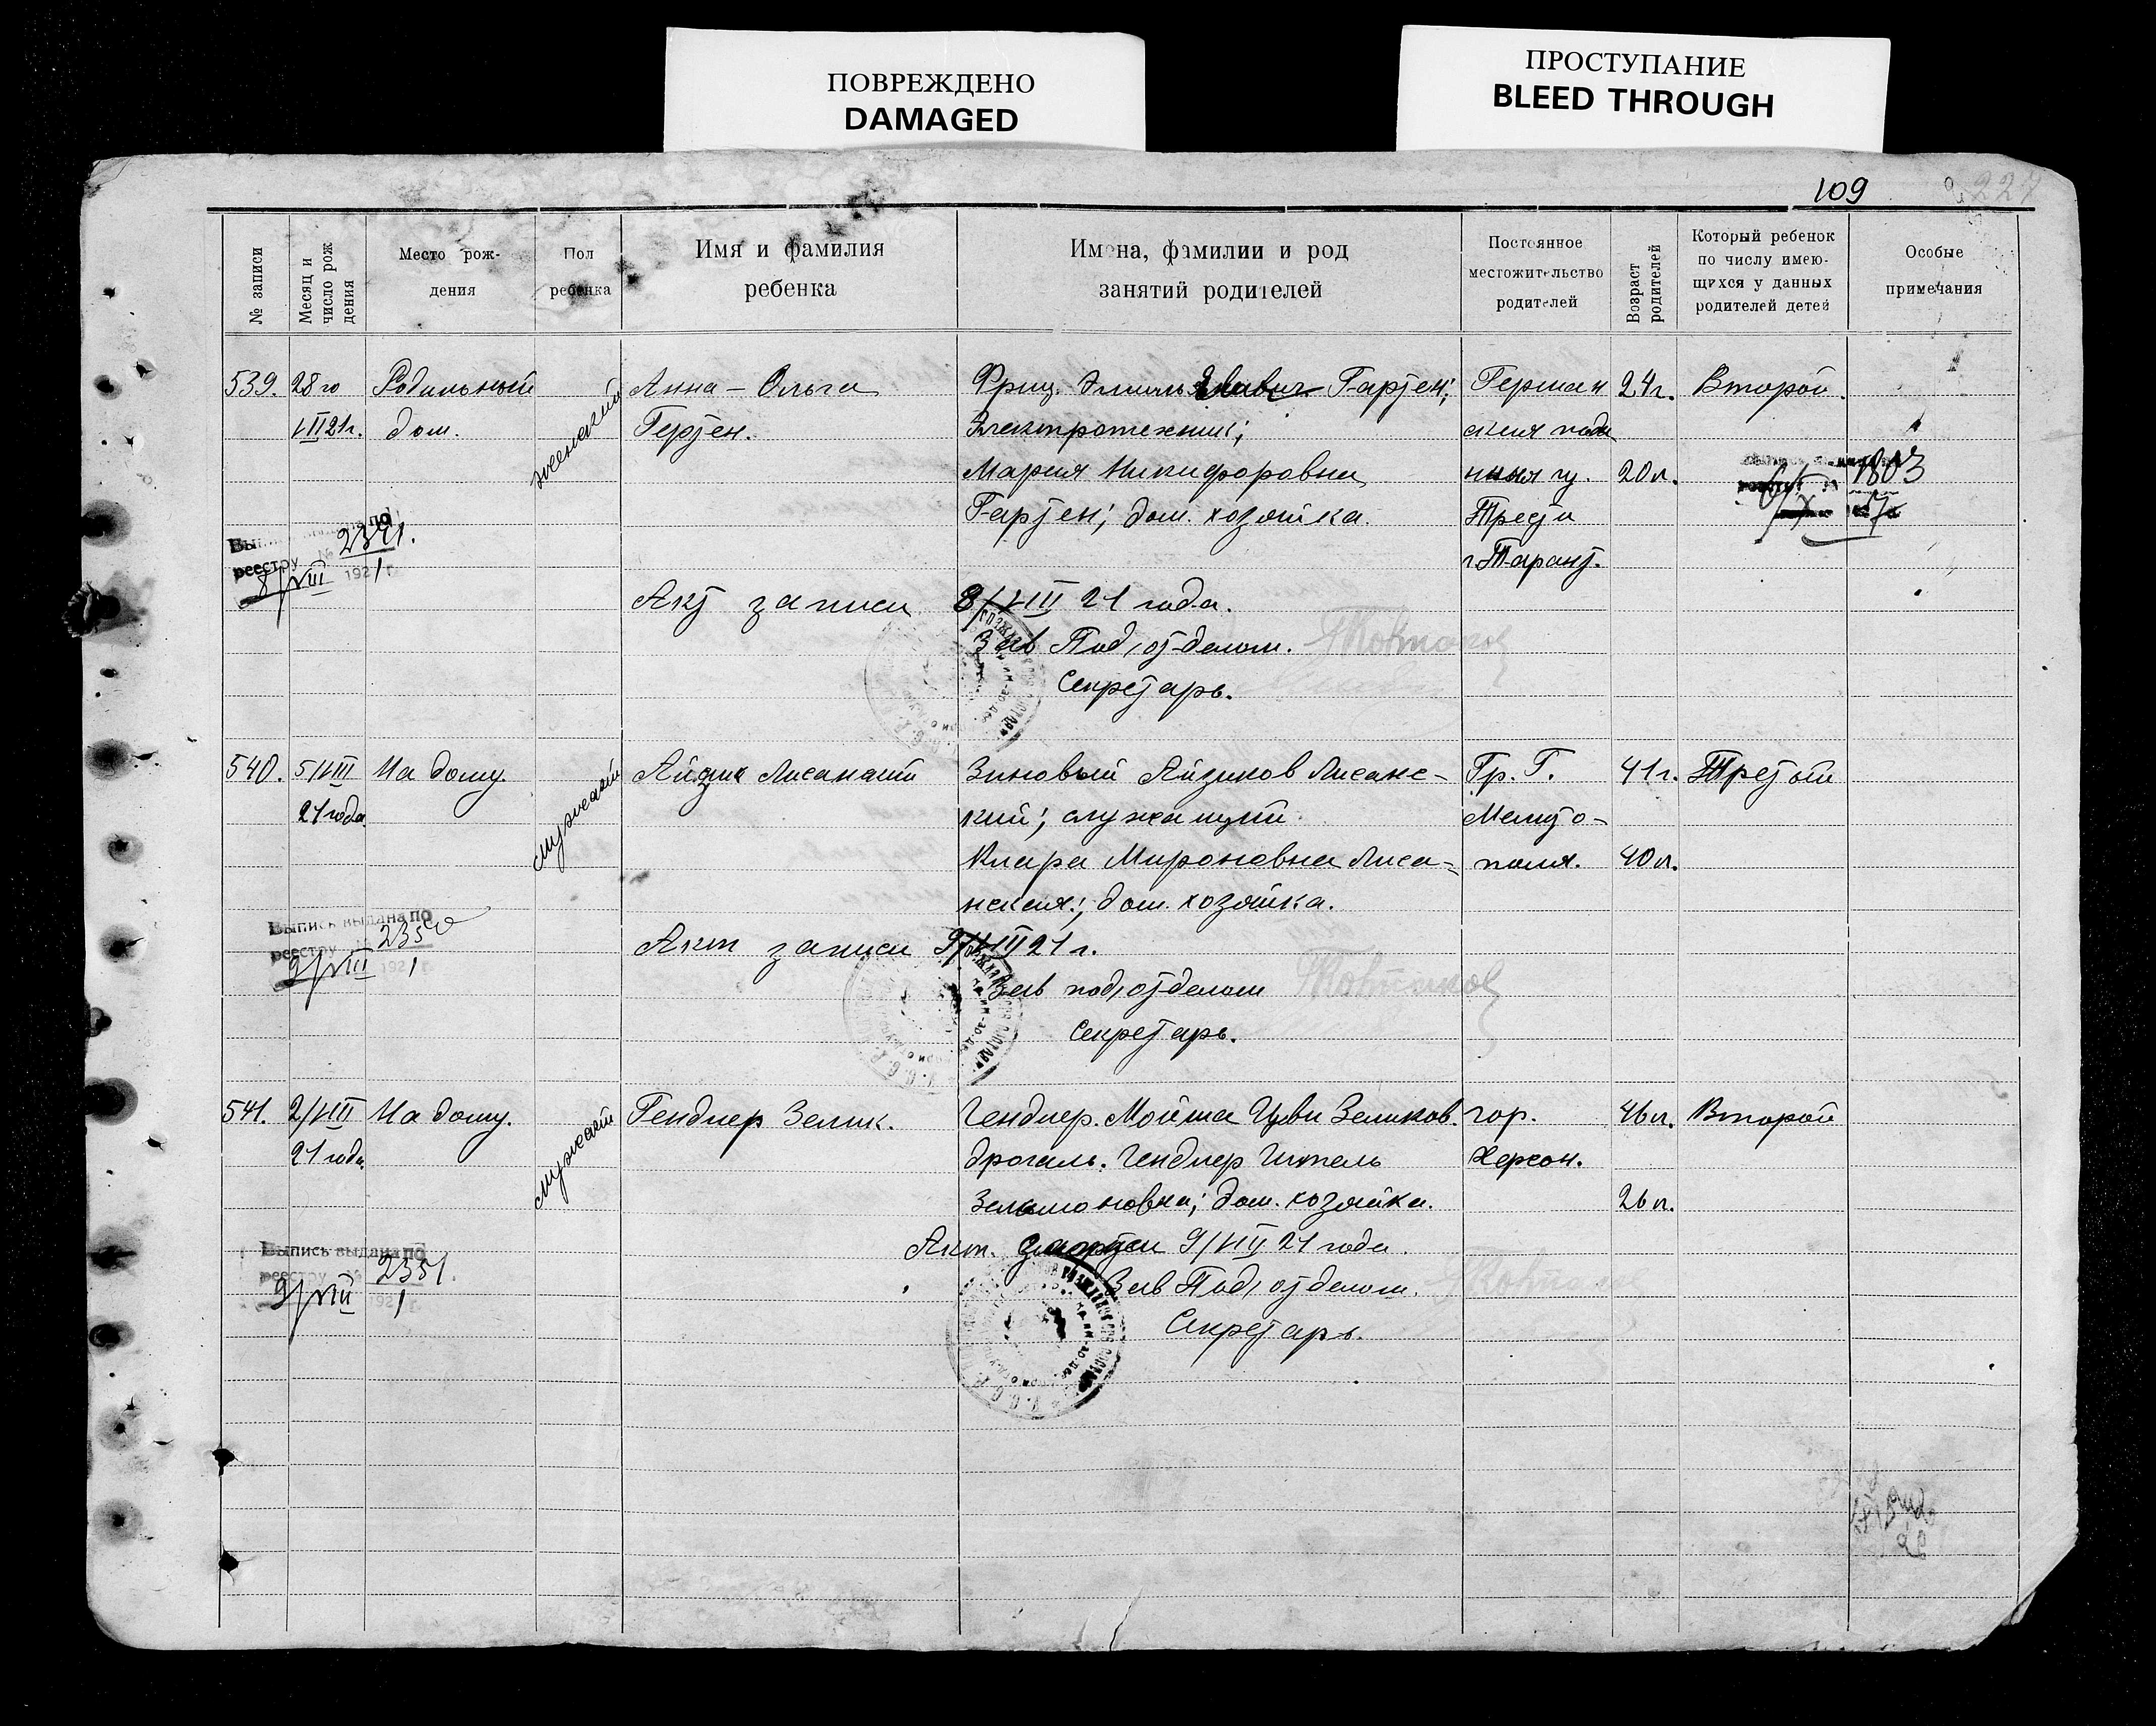 ПОВРЕЖДЕНО
DAMAGED
ПРОСТУПАНИЕ
BLEED THROUGH
109
227
№ записи
Месяц и число рождения
Место рождения
Пол ребенка
Имя и фамилия ребенка
Имена, фамилии и род занятий родителей
Постоянное местожительство родителей
Возраст родителей
Который ребенок по числу имеющихся у данных родителей детей
Особые примечания
539. 28го Родильный женский Анна – Ольга Фриц Эмиль Гартен; Герман 24 г. Второй
VII 21 г. дом. Гертен. Электротехник; ския
Мария Никифоровна 20 л. 1803
Гартен; дом. хозяйка.
Выпись выдана по
реестру №
8/VIII 1921 г.
Акт записи 8/VIII 21 года.
Зав Под, отделом.
Секретарь.
540. 5/VIII На дому. мужской Айзик Лисанский Зиновий Айзиков Лисанс- Гр. Г. 41 г. Третий
21 года кий; служащий Мелито-
Клара Мироновна Лиса- поля. 40 л.
нская; дом. хозяйка.
Выпись выдана по
реестру 2350
9/VIII 1921 г.
Акт записи 9/VIII 21 г.
Зав под, отделом
Секретарь.
541. 2/VIII На дому. мужской Гендлер Зелик. Гендлер. Мойша Цви Зеликов. гор. 46 л. Второй
21 года дрогаль. Гендлер Херсон.
Зельмановна; дом. хозяйка. 26 л.
Выпись выдана по
реестру № 2351.
9/VIII 1921 г.
Акт. записи 9/VIII 21 года.
Зав Под, отделом.
Секретарь.